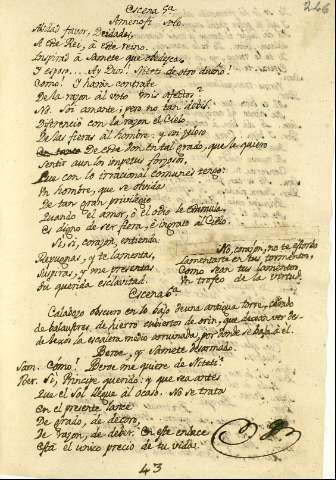 246
Escena 5ª
Amenofi solo
Pedid favor, Deidades,
A este Rei, à este reino.
Inspirad à Samete que obedezca,
Y espero.... Ay Dios! Nitetis de otro dueño!
Como! Y haran contraste
De la razon al voto mis afectos?
No. Soi amante; pero no tan debil.
Diferenciò con la razon el Cielo
De las fieras al hombre: y soi zeloso
De este don en tal grado, que la quiero
Sentir aun los impetus forzosos,
Que con lo irracional comunes tengo:
Un hombre, que se olvida
De tan gran privilegio
Quando el amor, ò el odio le estimula,
Es digno de ser fiera, è ingrato al Cielo.
Si, si, corazon, entiendo.
Repugnas, y te lamentas,
Suspiras, y me presentas
Tu querida esclavitud.
No, corazon, no te aflixas
lamentarte en tus tormentos,
Como sean tus lamentos
Un trofeo de la virtud.
Escena 6ª
Calabozo obscuro en lo bajo de una antigua torre, cerrado
de balaustres de hierro cubiertos de orin, que dexan ver des-
de lexos la escalera medio arruinada, por donde se baja à el.
Beroe, y Samete desarmado.
Sam. Como! Beroe me quiere de Nitetis?
Ber. Si, Principe querido: y que sea antes
Que el Sol llegue al ocaso. No se trata
En el presente lance
De grado, de decoro,
De razon, de deber. En este enlace
Està el unico precio de tu vida.
43